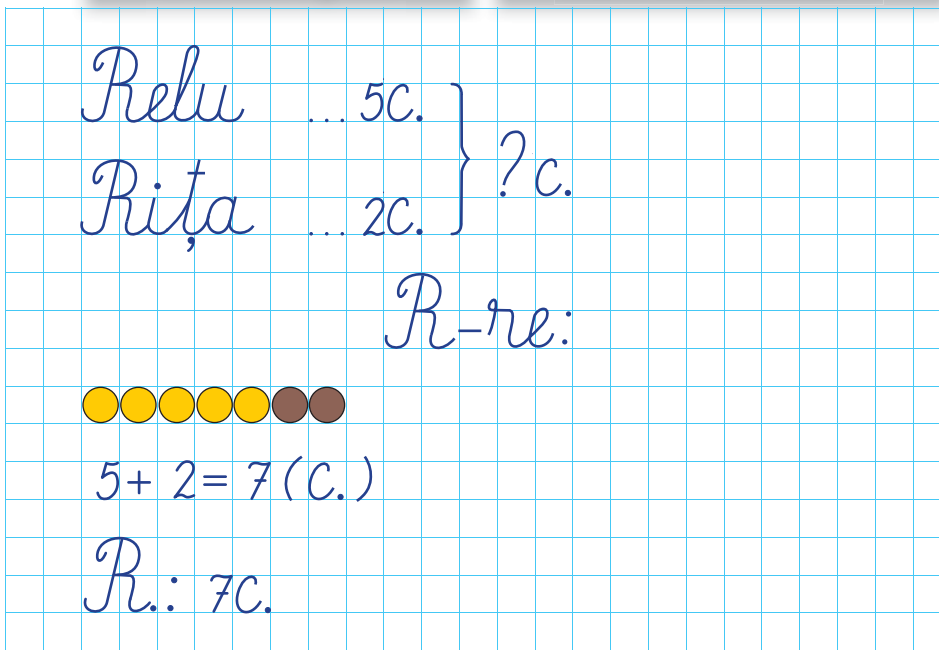 Relu ... 5c.
Rița ... 2c.
? c.
R-re:
5 + 2 = 7 (c.)
R.: 7c.